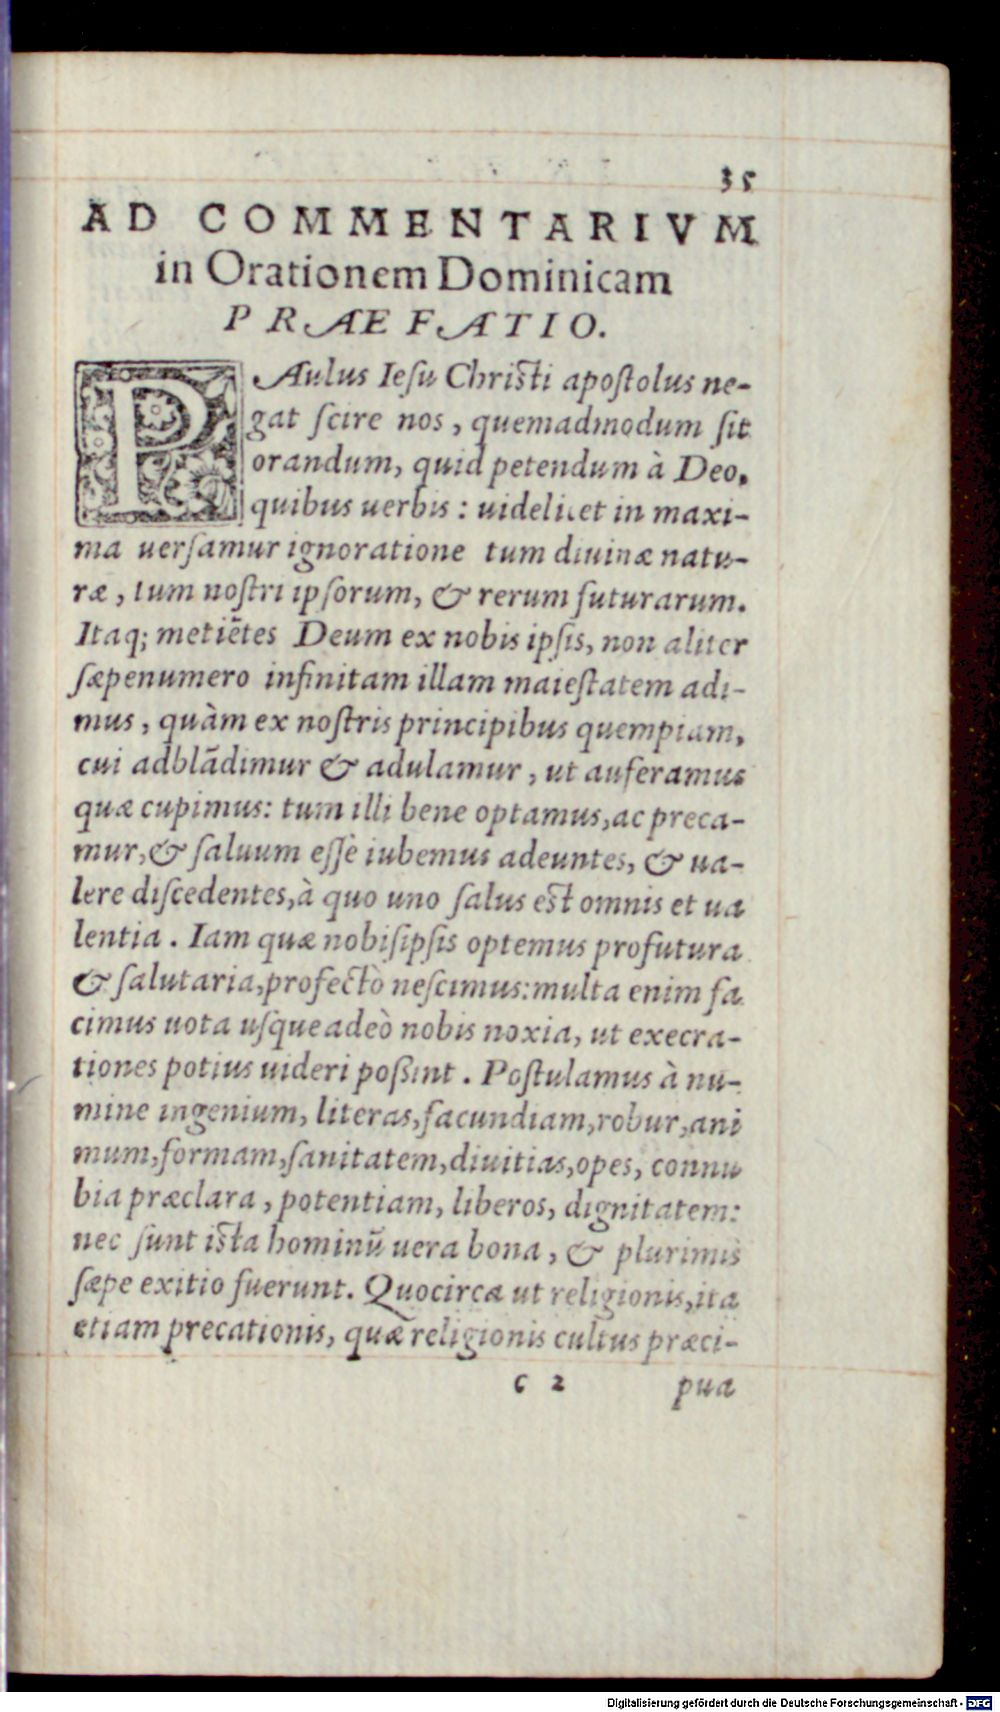 35
AD COMMENTARIVM
in Orationem Dominicam
PRAEFATIO.
PAulus Ieſu Chriſti apoſtolus ne-
gat ſcire nos, quemadmodum ſit
orandum, quid petendum à Deo,
quibus uerbis: uidelicet in maxi-
ma uerſamur ignoratione tum diuinæ natu-
ræ, tum noſtri ipſorum, & rerum futurarum.
Itaq; metiẽtes Deum ex nobis ipſis, non aliter
ſæpenumero infinitam illam maieſtatem adi-
mus, quàm ex noſtris principibus quempiam,
cui adblãdimur & adulamur, ut auferamus
quæ cupimus: tum illi bene optamus, ac preca-
mur, & ſaluum eſſe iubemus adeuntes, & ua-
lere diſcedentes, à quo uno ſalus eſt omnis et ua
lentia. Iam quæ nobiſipſis optemus profutura
& ſalutaria, profectò neſcimus: multa enim fa
cimus uota uſqueadeò nobis noxia, ut execra-
tiones potius uideri poßint. Poſtulamus à nu-
mine ingenium, literas, facundiam, robur, ani
mum, formam, ſanitatem, diuitias, opes, connu
bia præclara, potentiam, liberos, dignitatem:
nec ſunt iſta hominũ uera bona, & plurimis
ſæpe exitio fuerunt. Quocirca ut religionis, ita
etiam precationis, quæ religionis cultus præci-
c 2 pua
Digitalisierung gefördert durch die Deutsche Forschungsgemeinschaft - DFG